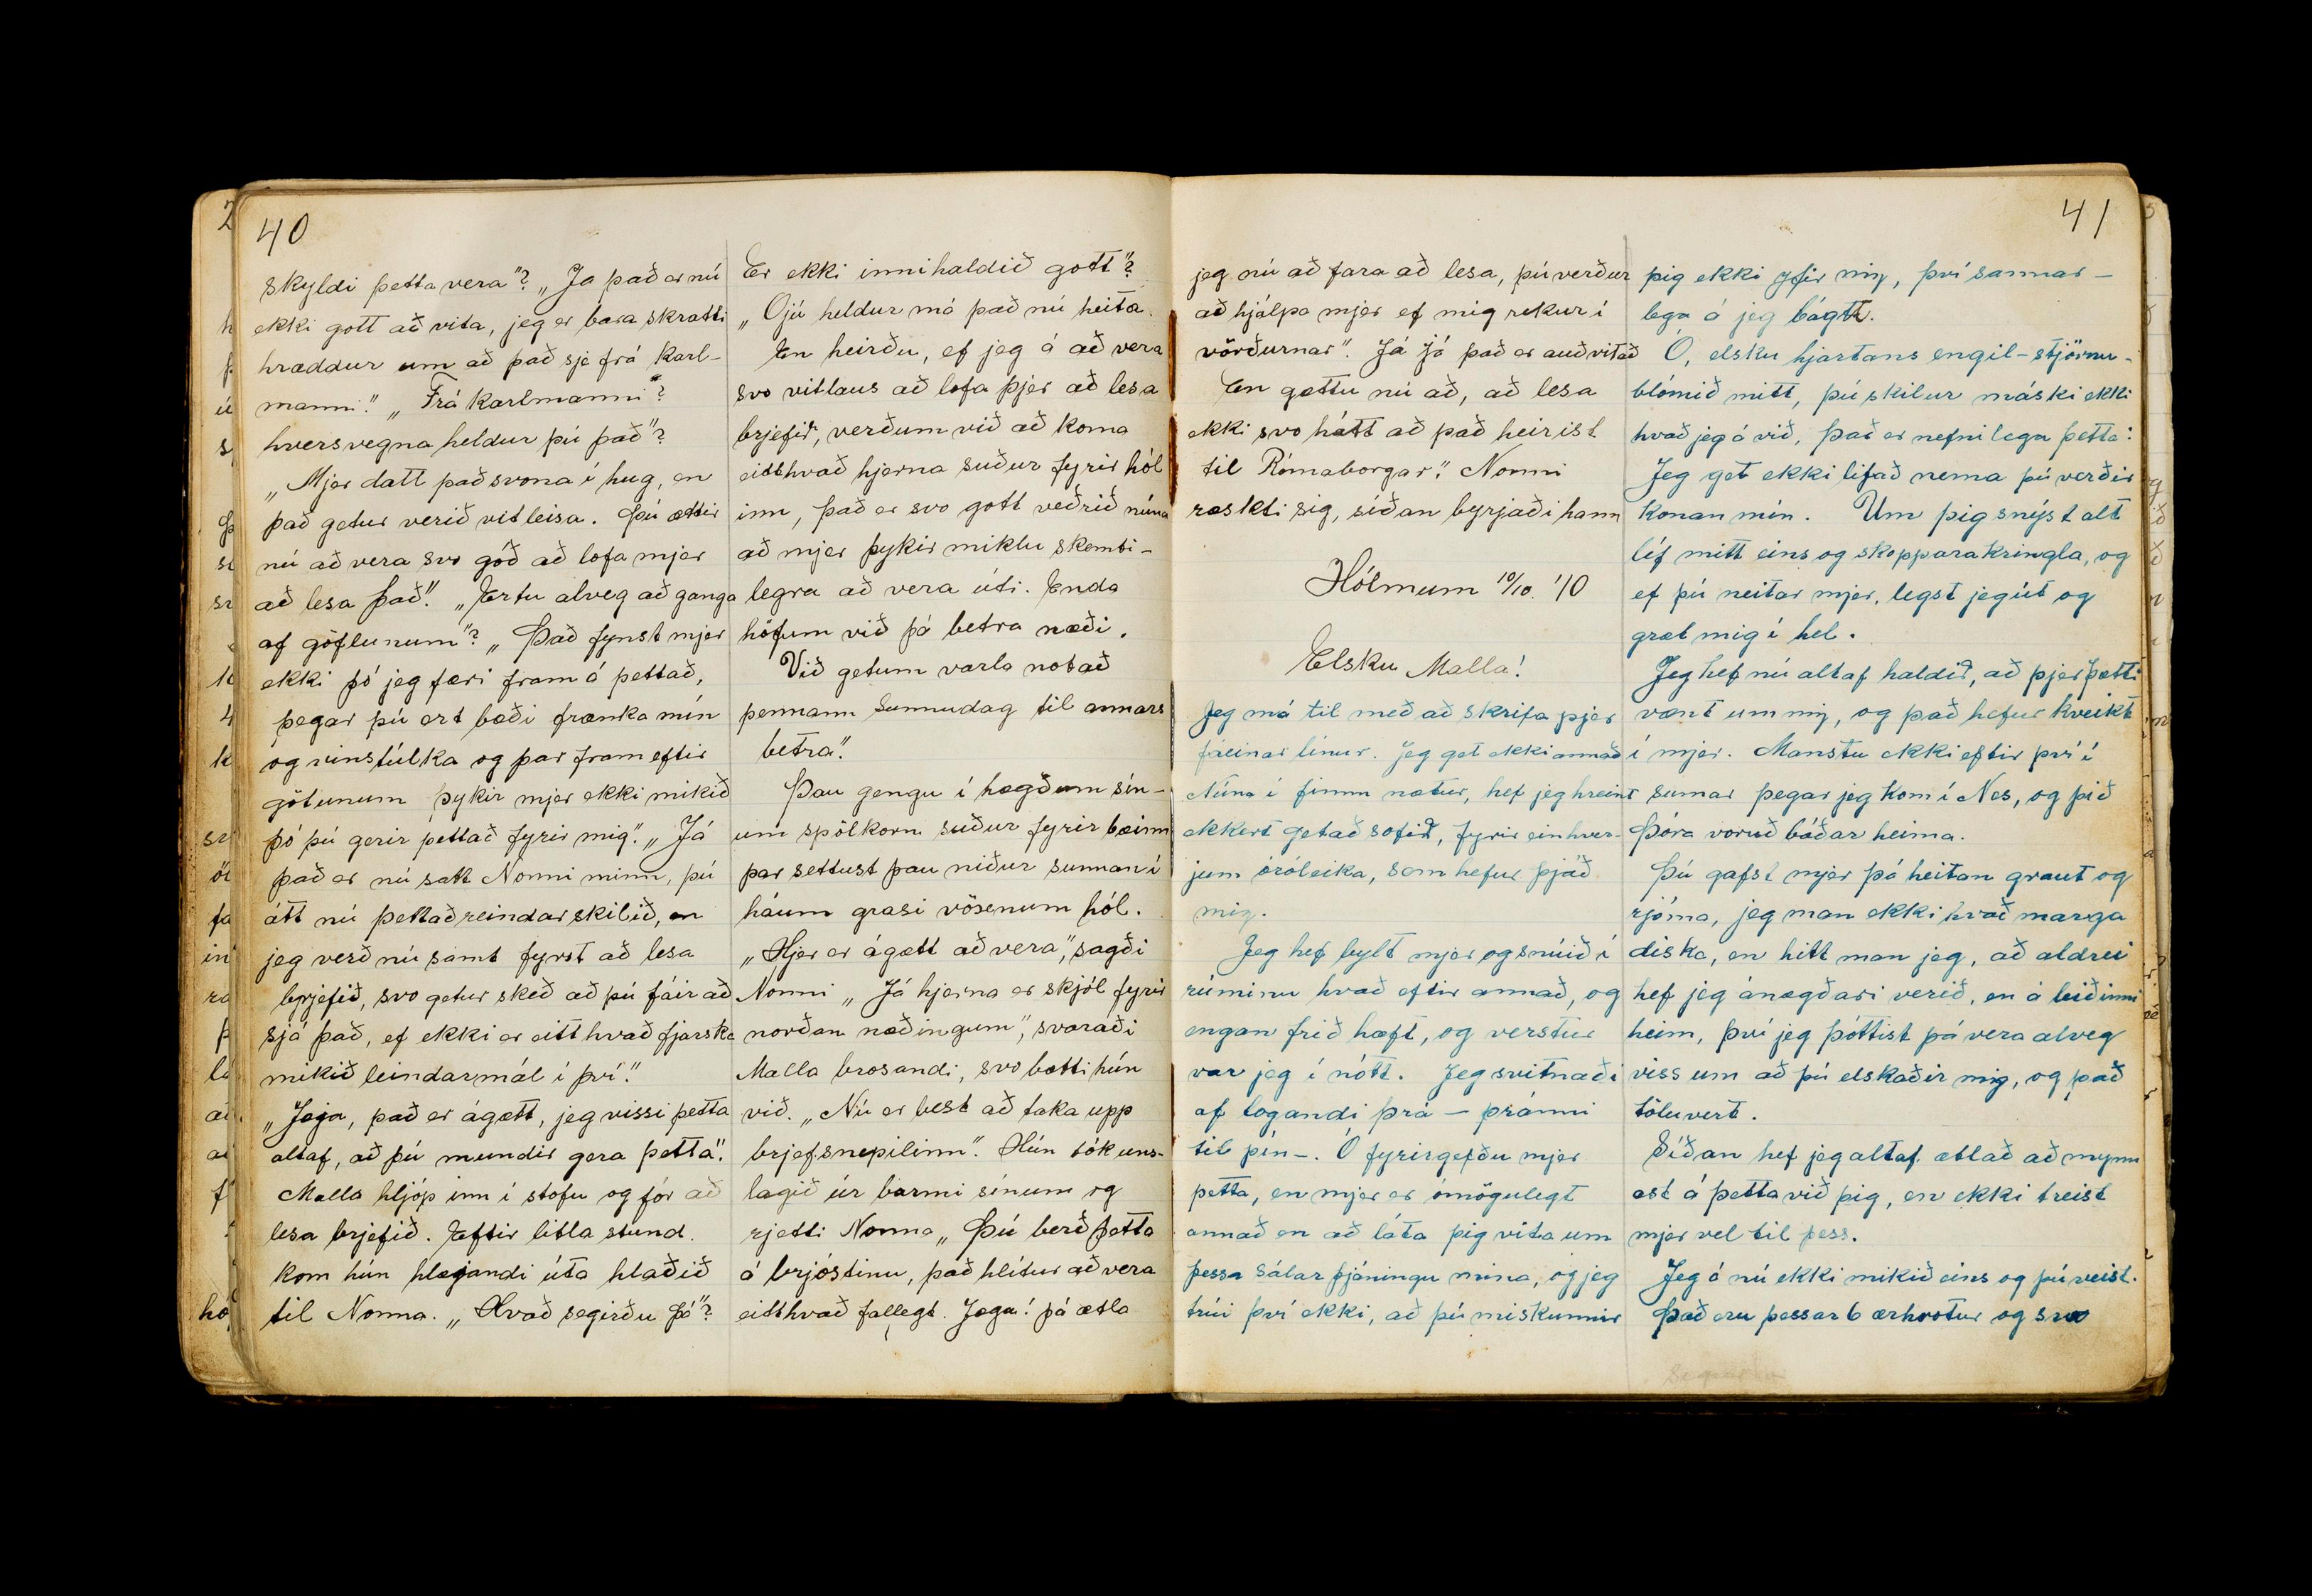 40
skyldi þetta vera"? „Ja það er nú
ekki gott að vita, jeg er bara skratti
hræddur um að það sje frá karl-
manni." „Frá karlmanni"?
hversvegna heldur þú það"?
„Mjer datt það svona í hug, en
það getur verið vitleisa. Þú ættir
nú að vera svo góð að lofa mjer
að lesa það". „Ertu alveg að ganga
af göflunum"? „Það fynst mjer
ekki þó jeg færi fram á þettað,
þegar þú ert bæði frænka mín
og vinstúlka og þar fram eftir
götunum þykir mjer ekki mikið
þó þú gerir þettað fyrir mig". „Já
það er nú satt Nonni minn, þú
átt nú þettað reindar skilið, en
jeg verð nú samt fyrst að lesa
brjefið, svo getur skeð að þú fáir að
sjá það, ef ekki er eitthvað fjarska
mikið leindarmál í því."
„Jæja, það er ágætt, jeg vissi þetta
altaf, að þú mundir gera þetta".
Malla hljóp inn í stofu og fór að
lesa brjefið. Eftir litla stund.
kom hún hlæjandi úta hlaðið
til Nonna. „Hvað segirðu þá"?
Er ekki innihaldið gott"?
„Ojú heldur má það nú heita.
En heirðu, ef jeg á að vera
svo vitlaus að lofa þjer að lesa
brjefið, verðum við að koma
eitthvað hjerna suður fyrir hól
inn, það er svo gott veðrið núna
að mjer þykir miklu skemti-
legra að vera úti. Enda
höfum við þá betra næði.
Við getum varla notað
þennann Sunnudag til annars
betra".
Þau gengu í hægðum sín-
um spölkorn suður fyrir bæinn
þar settust þau niður sunnan í
háum grasi vösenum hól.
„Hjer er ágætt að vera", sagði
Nonni „Já hjerna er skjól fyrir
norðan næðingum", svaraði
Malla brosandi, svo bætti hún
við. „Nú er best að taka upp
brjefsnepilinn". Hún tók ums-
lagið úr barmi sínum og
rjetti Nonna „Þú berð þetta
á brjóstinu, það hlítur að vera
eitthvað fallegt. Jæga! þá ætla
41
jeg nú að fara að lesa, þú verður
að hjálpa mjer ef mig rekur í
vörðurnar". Já já það er auðvitað
En gættu nú að, að lesa
ekki svo hátt að það heirist
til Rómaborgar". Nonni
ræskti sig, síðan byrjaði hann
Hólmum 10/10. '10
Elsku Malla!
Jeg má til með að skrifa þjer
fáeinar línur. Jeg get ekki annað
Núna í fimm nætur, hef jeg hreint
ekkert getað sofið, fyrir einhver-
jum óróleika, sem hefur þjáð
mig.
Jeg hef bylt mjer og snúið í
rúminu hvað eftir annað, og
engan frið haft, og verstur
var jeg í nótt. Jeg svitnaði
af logandi þrá – þránni
til þín –. Ó fyrirgefðu mjer
þetta, en mjer er ómögulegt
annað en að láta þig vita um
þessa sálar þjáningu mína, og jeg
trúi því ekki, að þú miskunnir
þig ekki yfir mig, því sannar-
lega á jeg bágt.
Ó, elsku hjartans engil-stjörnu-
blómið mitt, þú skilur máski ekki
hvað jeg á við, það er nefnilega þetta:
Jeg get ekki lifað nema þú verðir
konan mín. Um þig snýst alt
líf mitt eins og skopparakringla, og
ef þú neitar mjer, legst jeg út og
græt mig í hel.
Jeg hef nú altaf haldið, að þjer þætti
vænt um mig, og það hefur kveikt
í mjer. Manstu ekki eftir því í
sumar þegar jeg kom í Nes, og þið
Þóra voruð báðar heima.
Þú gafst mjer þá heitan graut og
rjóma, jeg man ekki hvað marga
diska, en hitt man jeg, að aldrei
hef jeg ánægðari verið, en á leiðinni
heim, því jeg þóttist þá vera alveg
viss um að þú elskaðir mig, og það
töluvert.
Síðan hef jeg altaf ætlað að mynn
ast á þetta við þig, en ekki treist
mjer vel til þess.
Jeg á nú ekki mikið eins og þú veist.
Það eru þessar 6 ærhrotur og svo